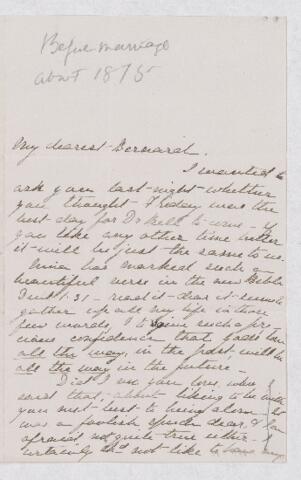 Before marriage
about 1875
My dearest Bernard.
I wanted to
ask you last night whether
you thought Friday were the
best day for Dr to come - if
you like any other time better
it will be just the same to us.
has marked such a
beautiful verse in the new Bible
1.31 - read it dear it seems to
gather up all my life in those
few words, & to give such a pre
cious confidence that God's love
all the way, in the past, will be
all the way in the future.
Did I you love, when I
said that, about liking to be with
you not best to being alone - it
was a foolish speech dear, & I am
afraid not quite true either. I
certainly shd not like to have